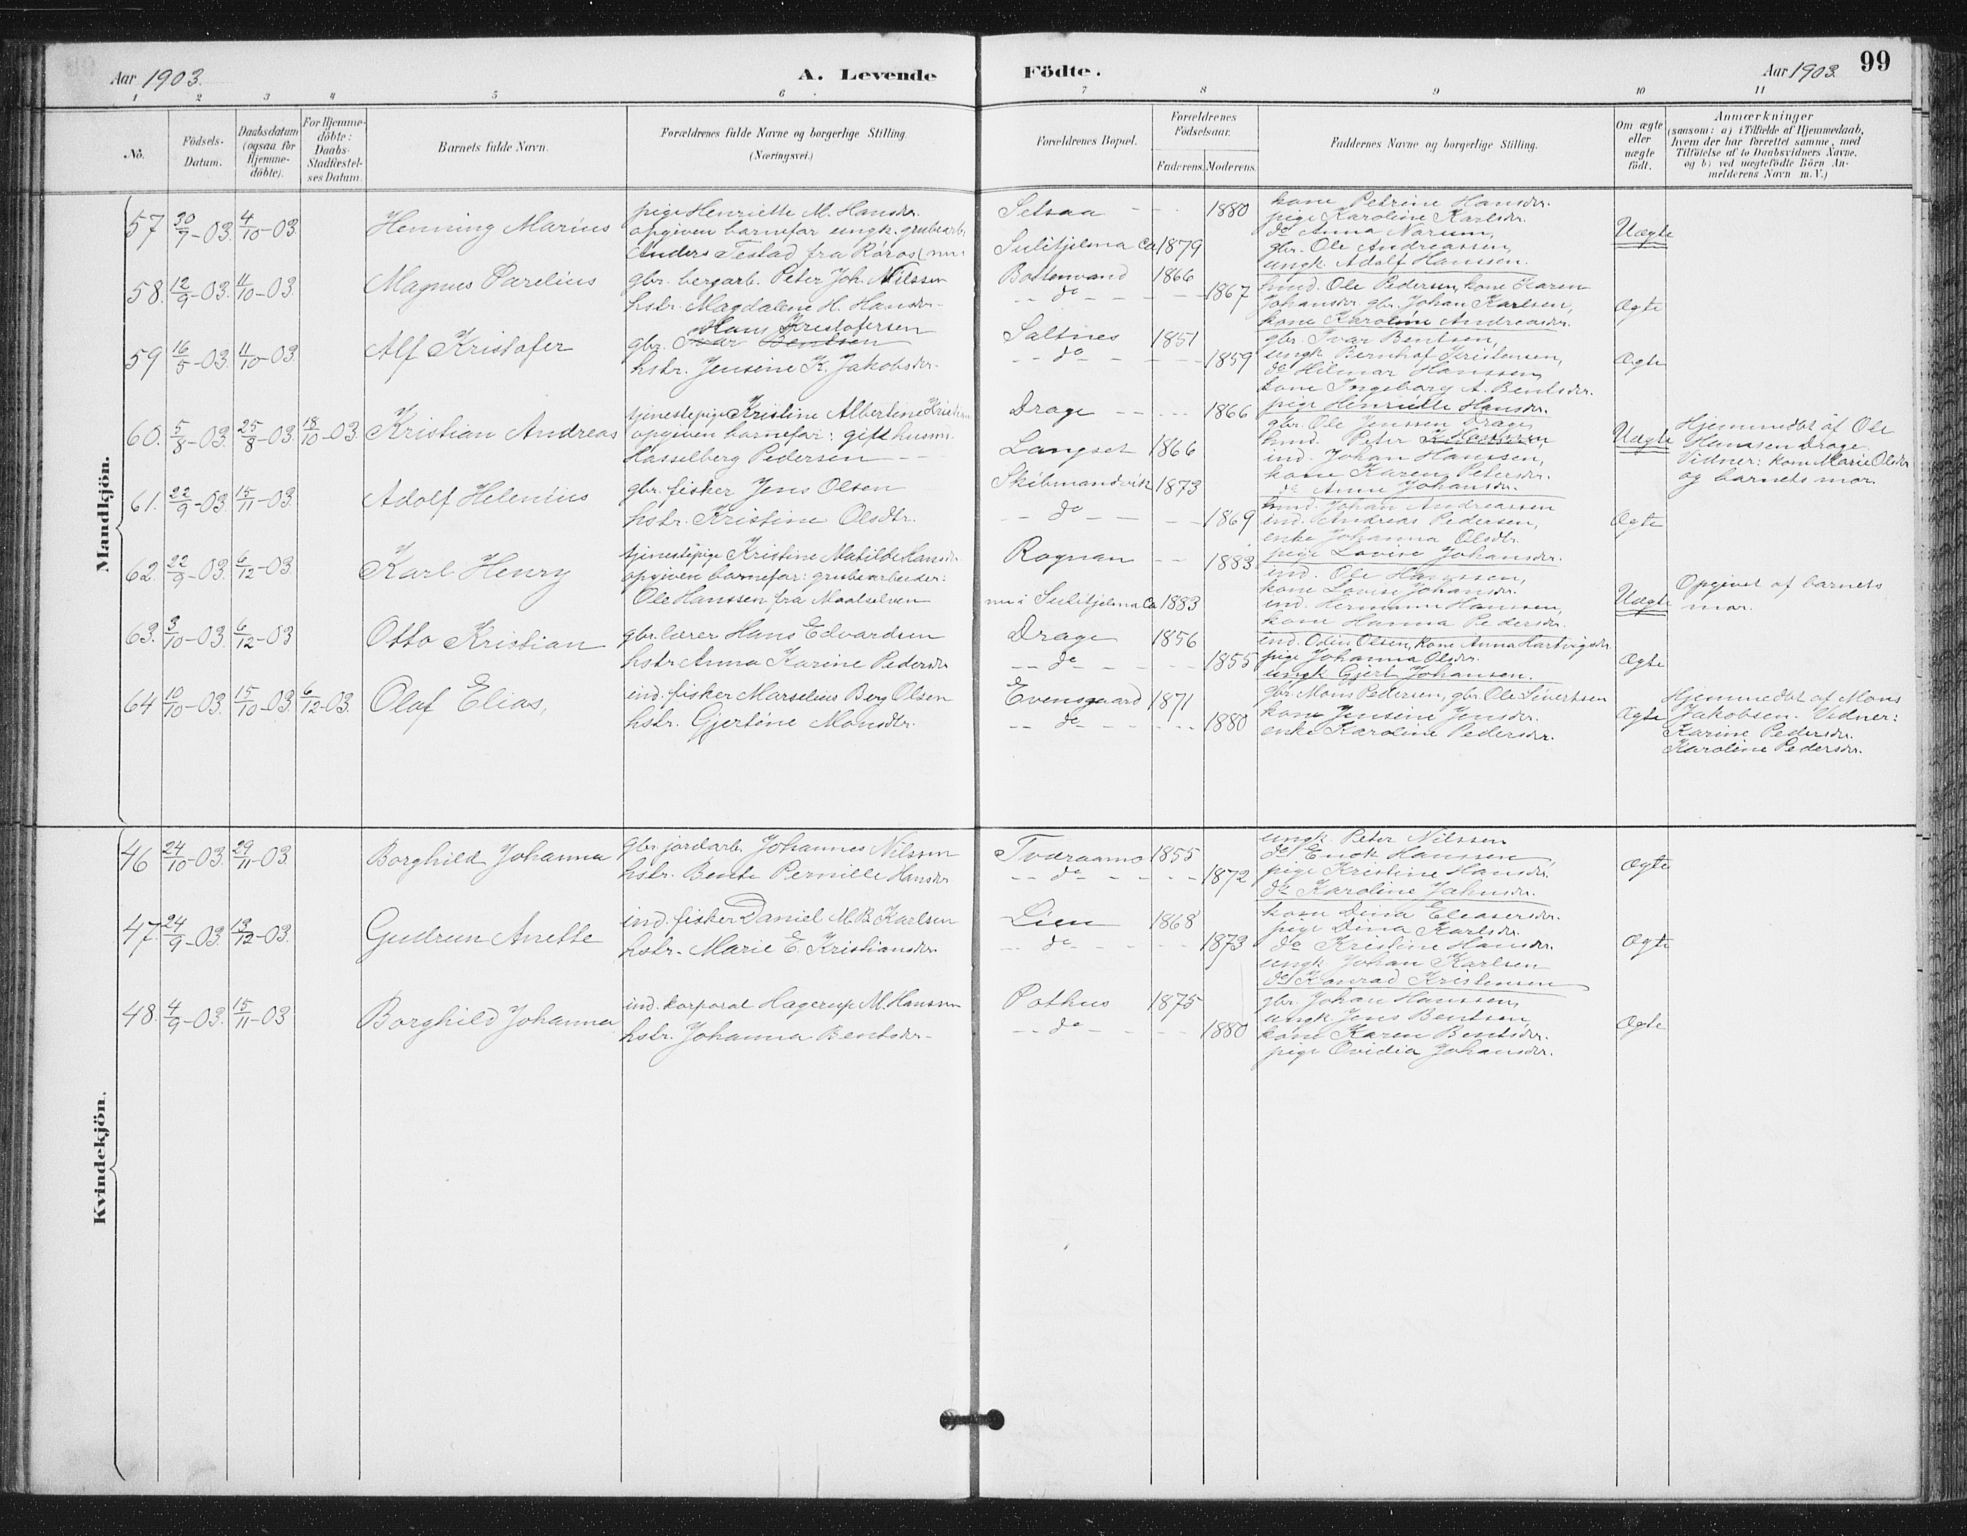 Aar 1903.
A. Levende Födte.
Aar 1903. 99
1 2 3 4 5 6 7 8 9 10 11
No.
Födsels-Datum.
Daabsdatum (ogsaa for Hjemme-döbte).
For Hjemme-döbte: Daabs-Stadfæstel-ses Datum.
Barnets fulde Navn.
Forældrenes fulde Navne og borgerlige Stilling. (Næringsvei.)
Forældrenes Bopæl.
Forældrenes Födselsaar.
Faderens. Moderens.
Faddernes Navne og borgerlige Stilling.
Om ægte eller uægte födt.
Anmærkninger
(saasom: a) i Tilfælde af Hjemmedaab,
hvem der har forrettet samme, med
Tilföielse af to Daabsvidners Navne,
og b) ved uægtefödte Börn An-
melderens Navn m. V.)
Mandkjön.
57 30/7-03. 4/10-03. Henning Marius
pige Henriette M. Hansdr.
opgiven barnefar ungk. grubearb.
Anders Testad fra Röros (nu i
Setsaa 1880
Sulitjelma Ca 1879
kone Petrine Hansdr.
pige Karoline Karlsdr.
do Anna Narum,
gbr. Ole Andreassen,
ungk. Adolf Hanssen.
Uægte
58. 12/9-03. 4/10-03. Magnus Parelius
gbr. bergarb. Peter Joh. Nilssen
hstr. Magdalene H. Hansdr.
Bottenvand 1866
do 1867
hmd. Ole Pedersen, kone Karen
Johansdr. gbr. Johan Karlsen,
kone Karoline Andreasdr.
Ægte
59 16/5-03. 11/10-03 Alf Kristofer
Hans Kristofersen
gbr. Ivar Bentsen
hstr. Jensine K. Jakobsdr.
Saltnes 1851
do 1859
gbr. Ivar Bentsen,
ungk. Bernhof Kristensen,
do Hilmar Hanssen,
kone Ingeborg A. Bentsdr.
pige Henriette Hansdr.
Ægte
60. 5/8-03. 25/8-03. 18/10-03. Kristian Andreas
tjenestepige Kristine Albertine
opgiven barnefar: gift husm.
Hasselberg Pedersen
Drage 1866
Langset 1866
gbr. Ole Jenssen Drage,
hmd. Peter
ind. Johan Hanssen,
kone Karen Petersdr.
do Anne Johansdr.
Uægte
Hjemmedbt af Ole
Hanssen Drage.
Vidner: kone Marie Olsdr
og barnets mor.
61. 22/9-03. 15/11-03. Adolf Helenius
gbr. fisker Jens Olsen
hstr. Kristine Olsdtr.
Skibmandvik 1873
do 1869
hmd. Johan Andreassen
ind. Andreas Pedersen,
enke Johanna Olsdtr.
pige Lovise Johansdr.
Ægte
62. 22/9-03. 6/12-03. Karl Henry
tjenestepige Kristine Matilde Hansdr.
opgiven barnefar: grubearbeider:
Ole Hanssen, fra Maalselven
Rognan 1883
nu i Sulitjelma Ca 1883
ind. Ole Hanssen,
kone Lovise Johansdr.
ind. Hermann Hanssen,
kone Hanna Pedersdr.
Uægte
Opgivet af barnets
mor.
63. 3/10-03. 6/12-03 Otto Kristian
gbr. lærer Hans Edvardsen
hstr. Anna Karine Pedersdr
Drage 1856
do 1855
ind. Odin Olsen, kone Anna Hartvigsdr.
pige Johanna Olsdr.
ungk Gjert Johansen.
Ægte
64 10/10-03. 15/10-03 6/12-03. Olaf Elias,
ind. fisker Marselius Berg Olsen
hstr. Gjertine Monsdtr.
Evensgaard 1871
do 1880
gbr. Mons Pedersen, gbr. Ole Sivertsen
kone Jensine Jensdr.
enke Karoline Pedersdr.
Ægte
Hjemmedbt af Mons
Jakobsen. Vidner:
Karine Pedersdr.
Karoline Pedersdr.
Kvindekjön.
46 24/10-03. 29/11-03. Borghild Johanna
gbr. jordarb. Johannes Nilssen
hstr. Bente Pernille Hansdr
Tværaamo 1855
do 1872
ungk. Peter Nilssen
do Enok Hanssen,
pige Kristine Hansdr.
do Karoline Jahnsdr.
Ægte
47. 24/9-03. 13/12-03. Gudrun Anette
ind. fisker Daniel M. B. Karlsen
hstr. Marie E. Kristiansdr.
Lien 1868
do 1873
kone Dina Eleasersdr.
pige Dina Karlsdr.
do Kristine Hansdr.
ungk. Johan Karlsen
do Konrad Kristensen
Ægte
48. 4/9-03. 15/11-03 Borghild Johanna
ind. korporal Hagerup M. Hanssen
hstr. Johanna Bentsdr.
Pothus 1875
do 1880
gbr. Johan Hanssen,
ungk Jens Bentsen,
kone Karen Bentsdr.
pige Ovidia Johansdr.
Ægte